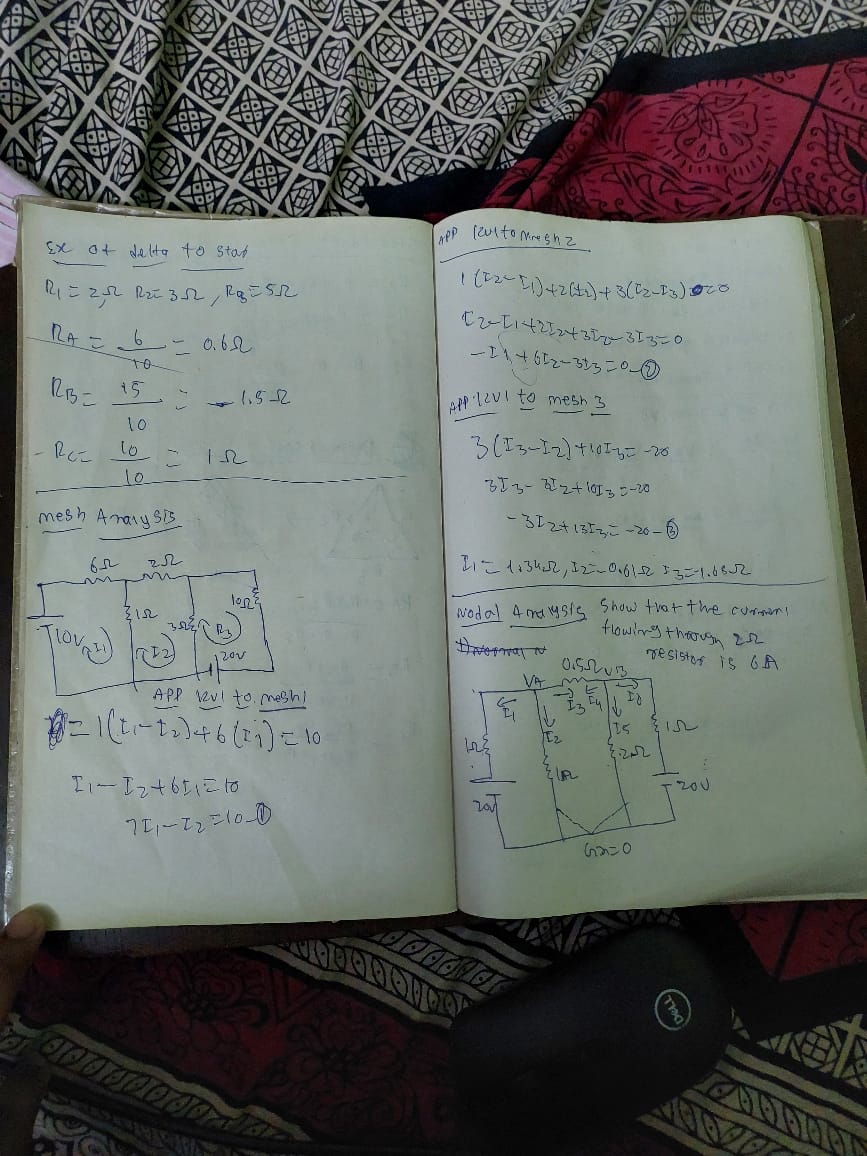 Ex of delta to star
R1 = 2Ω R2 = 3Ω, R3 = 5Ω
RA = 6/10 = 0.6Ω
RB = 15/10 = 1.5Ω
RC = 10/10 = 1Ω
mesh Analysis
6Ω 2Ω
1Ω 3Ω 10Ω
10V I1 I2 R3
20V
APP KVL to mesh1
= 1(I1-I2)+6(I1) = 10
I1-I2+6I1=10
7I1-I2=10-①
APP KVL to Mesh2
1(I2-I1)+2(I2)+3(I2-I3)=0
I2-I1+2I2+3I2-3I3=0
-I1+6I2-3I3=0-②
APP KVL to mesh 3
3(I3-I2)+10I3=-20
3I3-3I2+10I3=-20
-3I2+13I3=-20-③
I1=1.34Ω, I2=-0.61Ω I3=-1.68Ω
Nodal Analysis Show that the current
flowing through 2Ω
resistor is 6A
0.5Ω
VA VB
I1 I3 I4 I6
I2 I5
1Ω 1Ω 2Ω 1Ω
20V 20V
Gn=0
DELL